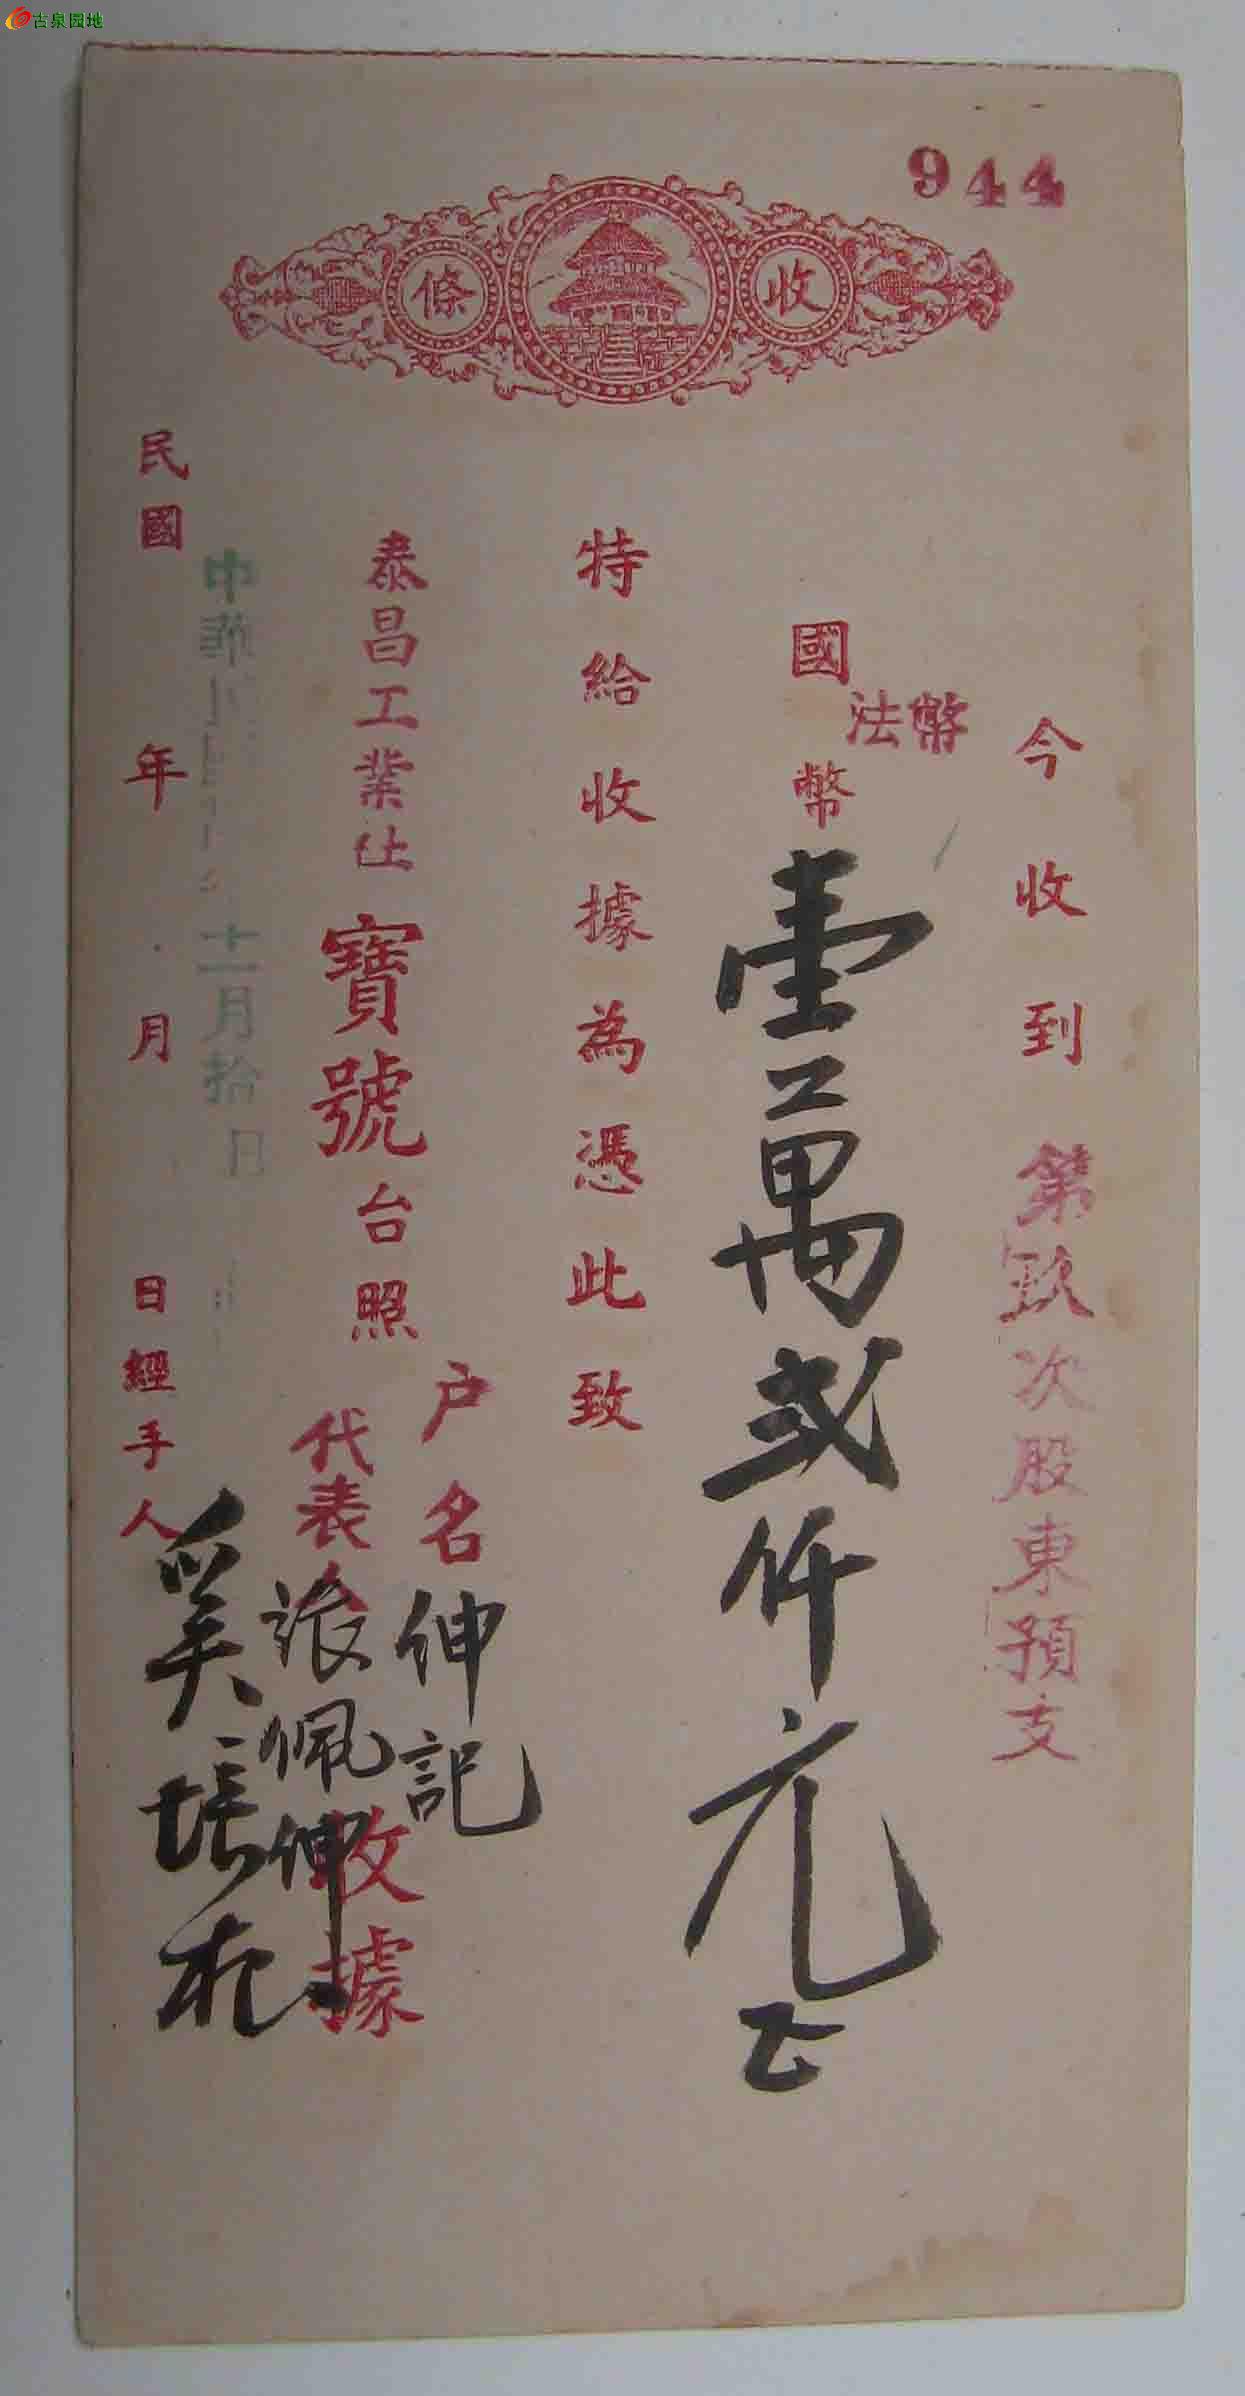 古泉园地
944
收條
今收到第玖次股東預支
法幣
國幣壹萬貳仟元正
特給收據為憑此致
泰昌工業社寶號台照
户名伸記
代表 張佩伸
收據
中華民國 十二月拾 日
民國 年 月 日經手人